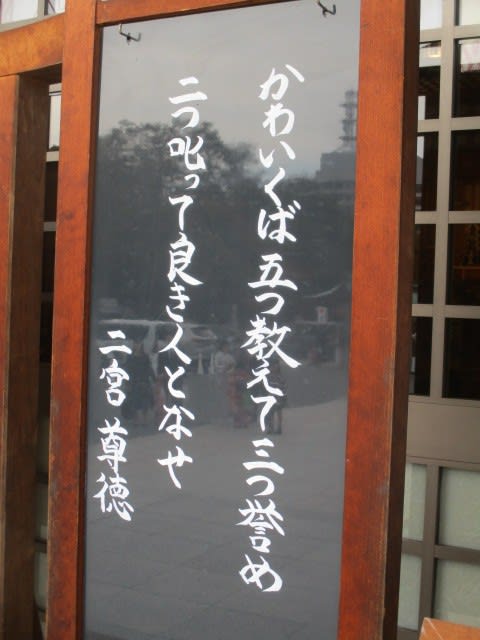 かわいくば五つ教えて三つ誉め
二つ叱って良き人となせ
二宮尊徳